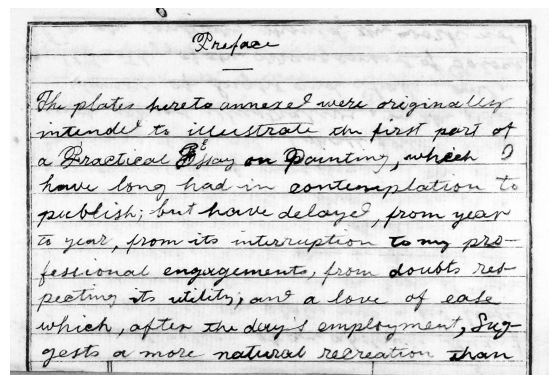 Preface
The plates hereto annexed were originally
intended to illustrate the first part of
a Practical Essay on Painting, which I
have long had in contemplation to
publish; but have delayed, from year
to year, from its interruption to my pro-
fessional engagements, from doubts res-
pecting its utility; and a love of ease
which, after the day's employment, sug-
gests a more natural recreation than